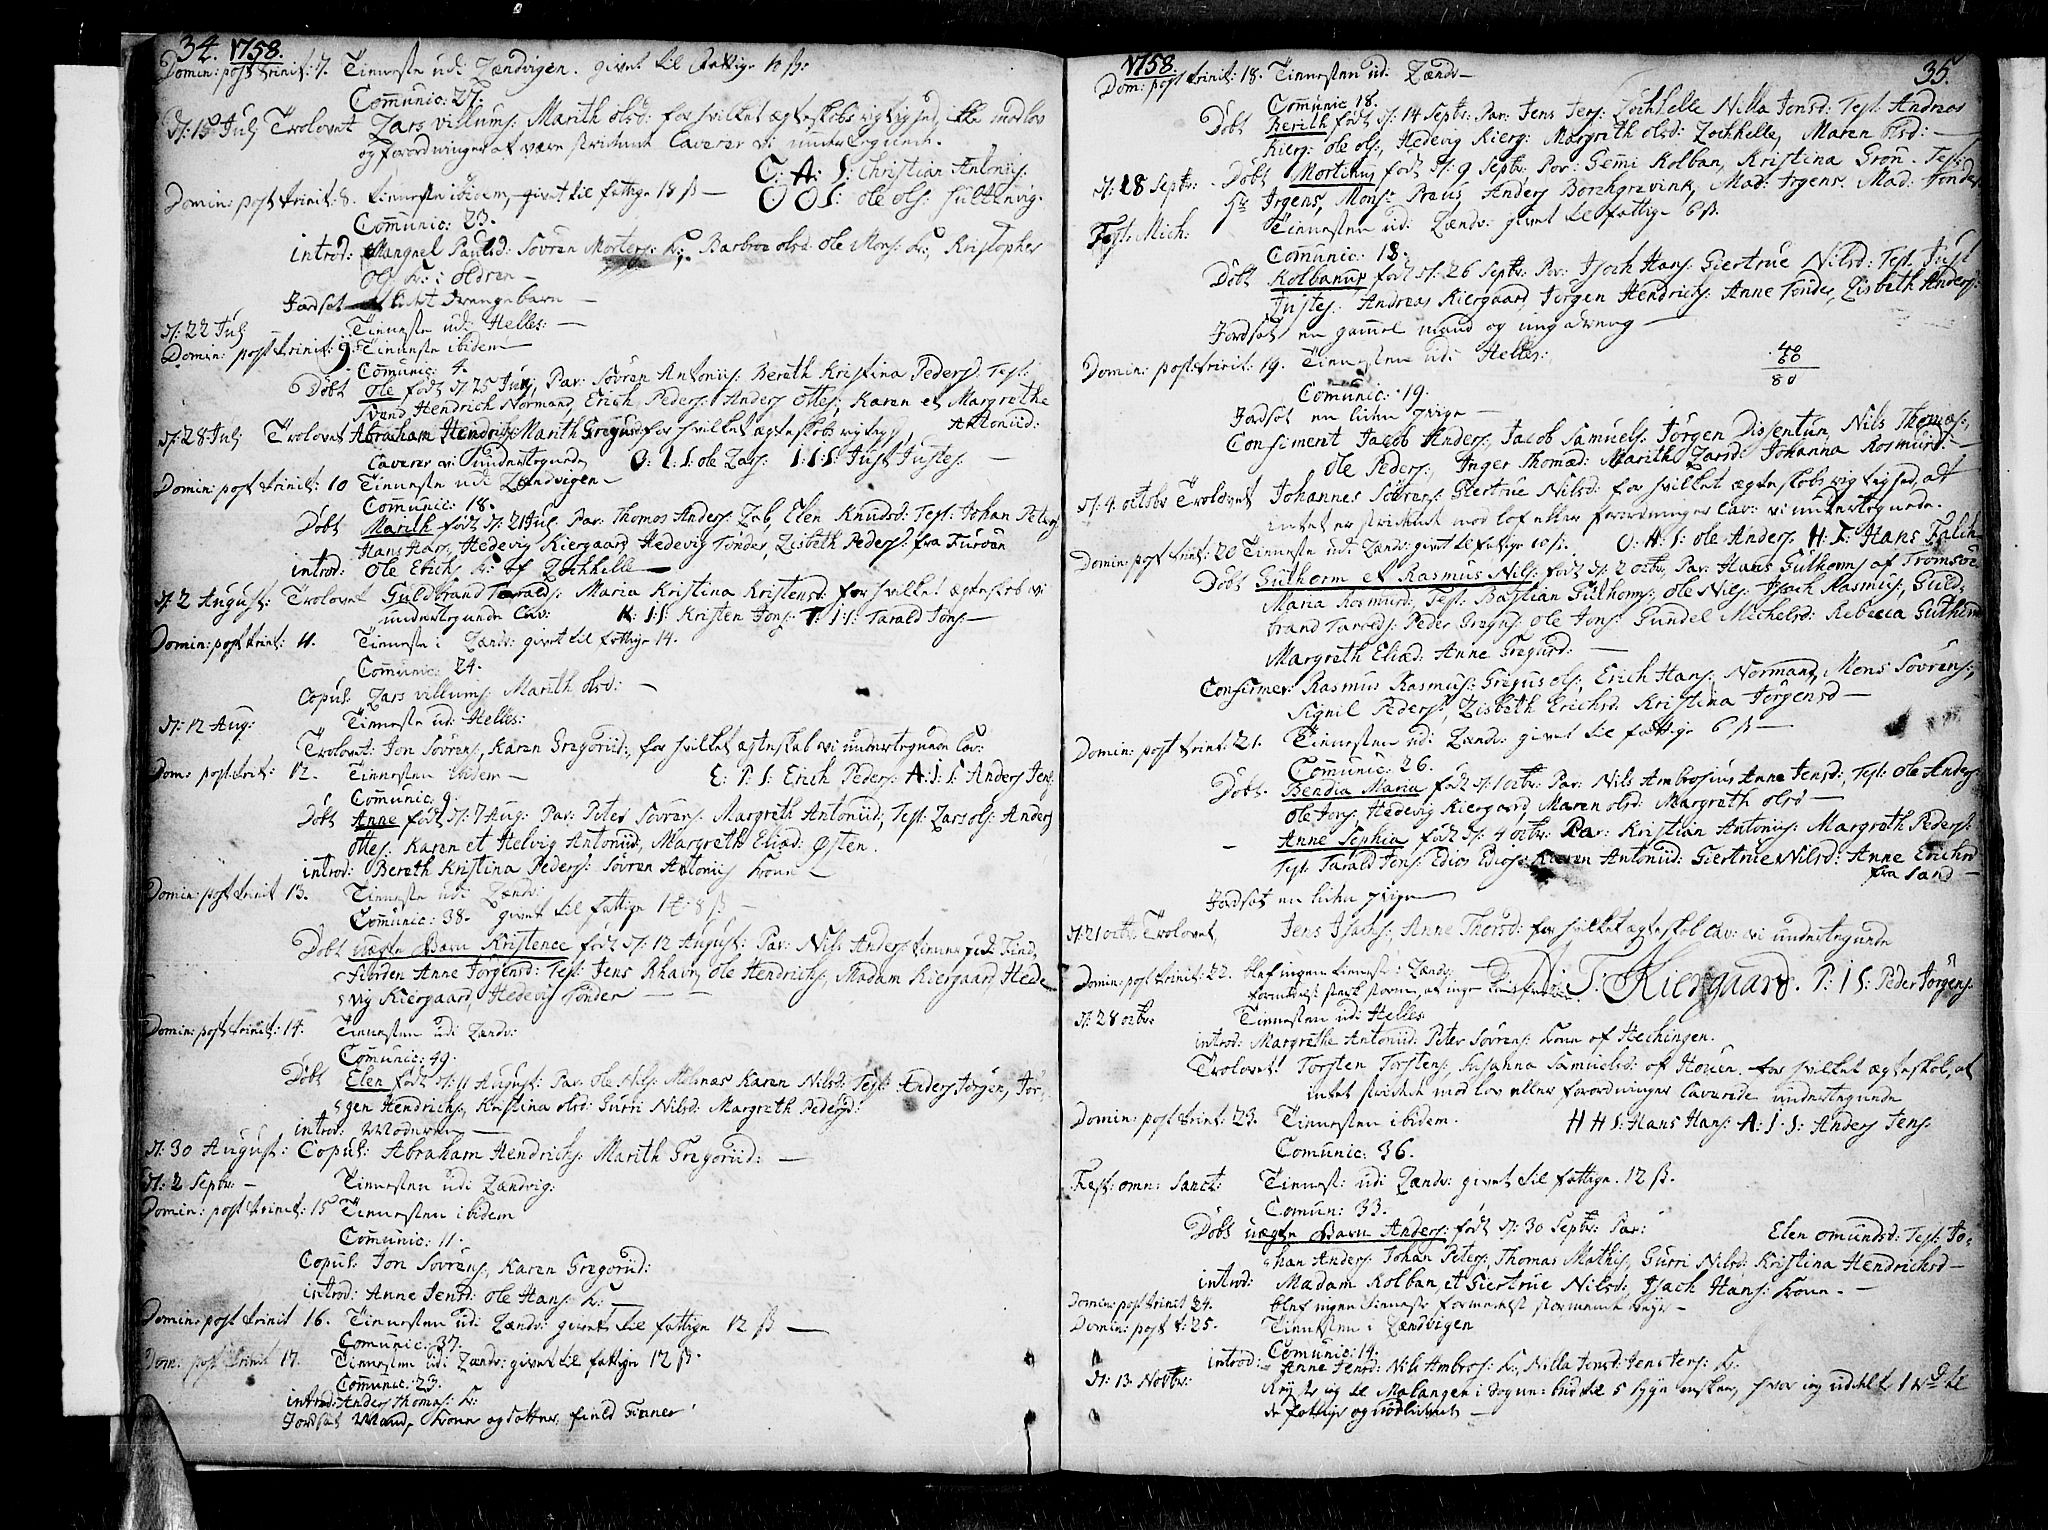 34. 1758.
Domin: post trinit: 7. Tinneste udi Lændvigen. givet til Fattige 10 ß:
Com̄unic: 27.
D: 15 Julj Trolovet Lars Villums: Marith olsd: for hvilket ægteskabs rigtighed, ike mod lov
og forordninger at være stridende Caverer vi undertegnede.
C: A: S: Christian Antonijs:
Domin: post trinit: 8. tinneste ibidem, givet til fattige 18 ß — O O S: ole ols:
Com̄unic: 23.
introd: Mangnel Paulsd: Sövren Mortens: K:, Barbroe olsd: ole Mons: K:, Kristopher
ols: K: i oldren —
Jordsat et lidet drengebarn —
D: 22 Julj Tinneste udi Helles: —
Domin: post trinit: 9. Tinneste ibidem
Com̄unic: 4.
Döbt Ole födt D: 25 Junj, Par: Sövren Antonijs: Bereth Kristina Pedersd: Test:
Svend Hendrich Normand, Erich Peders: Anders Ottes: Karen et Margrethe
Antoniid:
D: 28 Julj Trolovet Abraham Hendrichs: Marith Gregusd: for hvilket ægteskabs rigtig:
Caverer vi undertegnede O: L: S: ole Lars: I: I: S: Just Justes: —
Domin: post trinit: 10 Tinneste udi Lændvigen —
Com̄unic: 18.
Döbt Marith födt D: 21 Jul. Par: Thomas Anders: Leb, Elen Knudsd: Test: Johan Peters:
Hans Hans, Hedevig Kiergaard, Hedevig Tönder, Lisbeth Peders: fra Furöen
introd: Ole Erichs K: af Lochhelle —
D: 2 August: Trolovet Guldbrand Tarralds: Maria Kristina Kristensd: for hvilket ægteskab vi
undertegnede Cav: K: I: S: Kristen Jons: T: I: S: Tarald Jons —
Domin: post trinit: 11. Tinneste i Lændv: givet til fattige 14.
Com̄unic: 24.
Copul: Lars villums: Marith olsd: —
D: 12 Aug: Tinneste udi Helles:
Trolovet: Jon Sövrens, Karen Gregoriid:, for hvilket ægteskab vi undertegnede cav:
Dom: post trinit: 12. Tinnesten ibidem — E: P: S: Erich Peders: A: I: S: Anders Jens:
Com̄unic: 9.
Döbt Anne födt D: 7 Aug: Par: Peter Sövrens: Margreth Antoniid:, Test: Lars ols: Anders
Ottes: Karen et Helvig Antoniid, Margreth Eliæd: Östen.
introd: Bereth Kristina Peders: Sövren Antonijs kone —
Domin: post trinit 13. Tinneste udi Lændv:
Com̄unic: 38. givet til fattige 1 ß 8 ß —
Döbt uægte Barn Kristence födt D: 12 August: Par: Nils Anders: tiener udi Find,
Fiorden Anne Jörgensd: Test: Jens Rhavn, ole Hendrichs, Madam Kiergaard, Hede-
vig Kiergaard, Hedevig Tönder —
Domin: post trinit: 14. Tinnesten udi Lændv:
Com̄unic: 49.
Döbt Elen födt D: 11 August: Par: ole Nils: Karen Nilsd: Test: Anders Jörgen, Jör,
gen Hendrichs, Kristina olsd: Gurri Nilsd: Margreth Pedersd:
introd: Moderen —
D: 30 August: Copul: Abraham Hendrichs: Marith Gregoriid: —
D: 2 Septbr: — Tinnesten udi Lændvig:
Domin: post trinit: 15 Tinnesten ibidem
Com̄unic: 11.
Copul: Jon Sövrens, Karen Gregoriid:
introd: Anne Jensd: ole Hans: K: —
Domin: post trinit 16. Tinnesten udi Lændv: givet til fattige 12 ß —
Com̄unic: 37.
Dom: post trinit 17. Tinnesten udi Lændv: givet til fattige 12 ß.
Com̄unic: 23.
introd: Anders Thomas: K:
Jordsat Mand, kone og datter, field Finner
1758. 35.
Dom: post trinit: 18. Tinnesten udi Lændv —
Com̄unic 18.
Döbt Berith födt D: 14 Septbr: Par: Jens Jens: Lochhelle Nilla Jonsd: Test: Andreas
Kierg: ole ols:, Hedevig Kierg: Margreth olsd: Lochhelle, Maren olsd: —
D: 28 Septbr: Döbt Morting födt D: 9 Septbr: Par: Gemmi Kolban, Kristina Grön. Test:
Hr Irgens, Mons: Præus, Anders Borchgrevink, Mad: Irgens. Mad: Tönder
Fest: Mich: Tinnesten udi Lændv: givet til fattige 6 ß.
Com̄unic: 18.
Döbt Kolbanus födt D: 26 Septbr: Par: Isach Hans: Giertrue Nilsd: Test: Just
Justes: Andreas Kiergaard, Jörgen Hendrichs: Anne Tönder, Lisbeth Anders:
Jordsat en gam̄el mand og ung dreng —
Domin: post trinit: 19. Tinnesten udi Helles:
40
60
80
Com̄unic: 19.
Jordsat en liden pige —
Confirmerit Jacob Anders:, Jacob Samuels: Jörgen Dissentun, Nils Thomas:
ole Peders:, Inger Thomæd: Marith Larsd: Johanna Rosmurd: —
D: 4 octobr Trolovet Johannes Sövrens: Giertrue Nilsd: for hvilket ægteskabs rigtighed, at
intet er stridende mod lof eller forordninger Cav: vi undertegnede.
Domin: post trinit: 20 Tinnesten udi Lændv: givet til fattige 10 ß. O: A: S: ole Anders. H: F: Hans Falch
Döbt Guthorm et Rasmus Nils: födt D: 2 octbr, Par: Hans Guthorms af Tromsöe
Maria Rosmurd:, Test: Bastian Guthorms, ole Nils: Isach Rasmus:, Guld,
brand Taralds: Peder Gregus: ole Jons: Gundel Michelsd: Rebecca Guthorm
Margreth Eliæd: Anne Gregurd: —
Confirmer: Rasmus Rasmus: Gregus ols:, Erich Hans: Normand, Mons Sövrens:,
Signil Peders:, Lisbeth Erichsd: Kristina Jörgensd —
Domin: post trinit: 21. Tinnesten udi Lændv: givet til fattige 6 ß —
Com̄unic: 26.
Döbt Bendia Maria födt D: 1 octbr: Par: Nils Ambrosius Anne Jensd:, Test: ole Anders:
ole Jons, Hedevig Kiergaard, Maren olsd: Margreth olsd —
Anne Sophia födt D: 4 octbr: Par: Kristian Antonijs: Margreth Peders:
Test: Tarald Jens: Edias Edias: Karen Antoniid: Giertrue Nilsd: Anne Erichsd
fra Sand —
Jordsat en liden pige —
D: 21 octb: Trolovet, Jens Isachs, Anne Thorsd: for hvilket ægteskab Cav: vi undertegnede
Domin: post trinit: 22. blef ingen tinneste i Lændv:
formedelst sterk storm, at ingen T: Kiergaard. P: I S: Peder Jörgens.
D: 28 octbr: Tinnesten udi Helles
introd: Margrethe Antoniid: Peter Sövrens: kone af Hechingen.
Trolovet Torsten Torstens, Susanna Samuelsd: af Houen. for hvilket ægteskab, at
intet stridende mod lov eller forordninger Caverede undertegnede
Domin: post trinit: 23. Tinnesten ibidem. H H S: Hans Hans: A: I: S: Anders Jens:
Com̄unic: 36.
Fest: omn: Sanct: Tinnest: udi Lændv: givet til fattige. 12 ß.
Com̄un: 33.
Döbt uægte Barn Anders: födt D: 30 Septbr: Par: Elen omundsd: Test: Jo-
han Anders: Johan Peters:, Thomas Mathis, Gurri Nilsd: Kristina Hendrichsd —
introd: Madam Kolban, et Giertrue Nilsd, Isach Hans: kone. —
Domin: post trinit 24. blef ingen tinneste formedelst stormende veyr —
Domin: post t: 25. Tinnesten i Lændvigen
Com̄unic: 14.
introd: Anne Jensd: Nils Ambros: K:, Nilla Jonsd: Jens Jens: K:
D: 13 Novbr: Reyste ieg til Malangen i Sogne: bud til 5 syge ensker, hvor ieg uddeelte 1 rd til
de fattige og nödlidende —